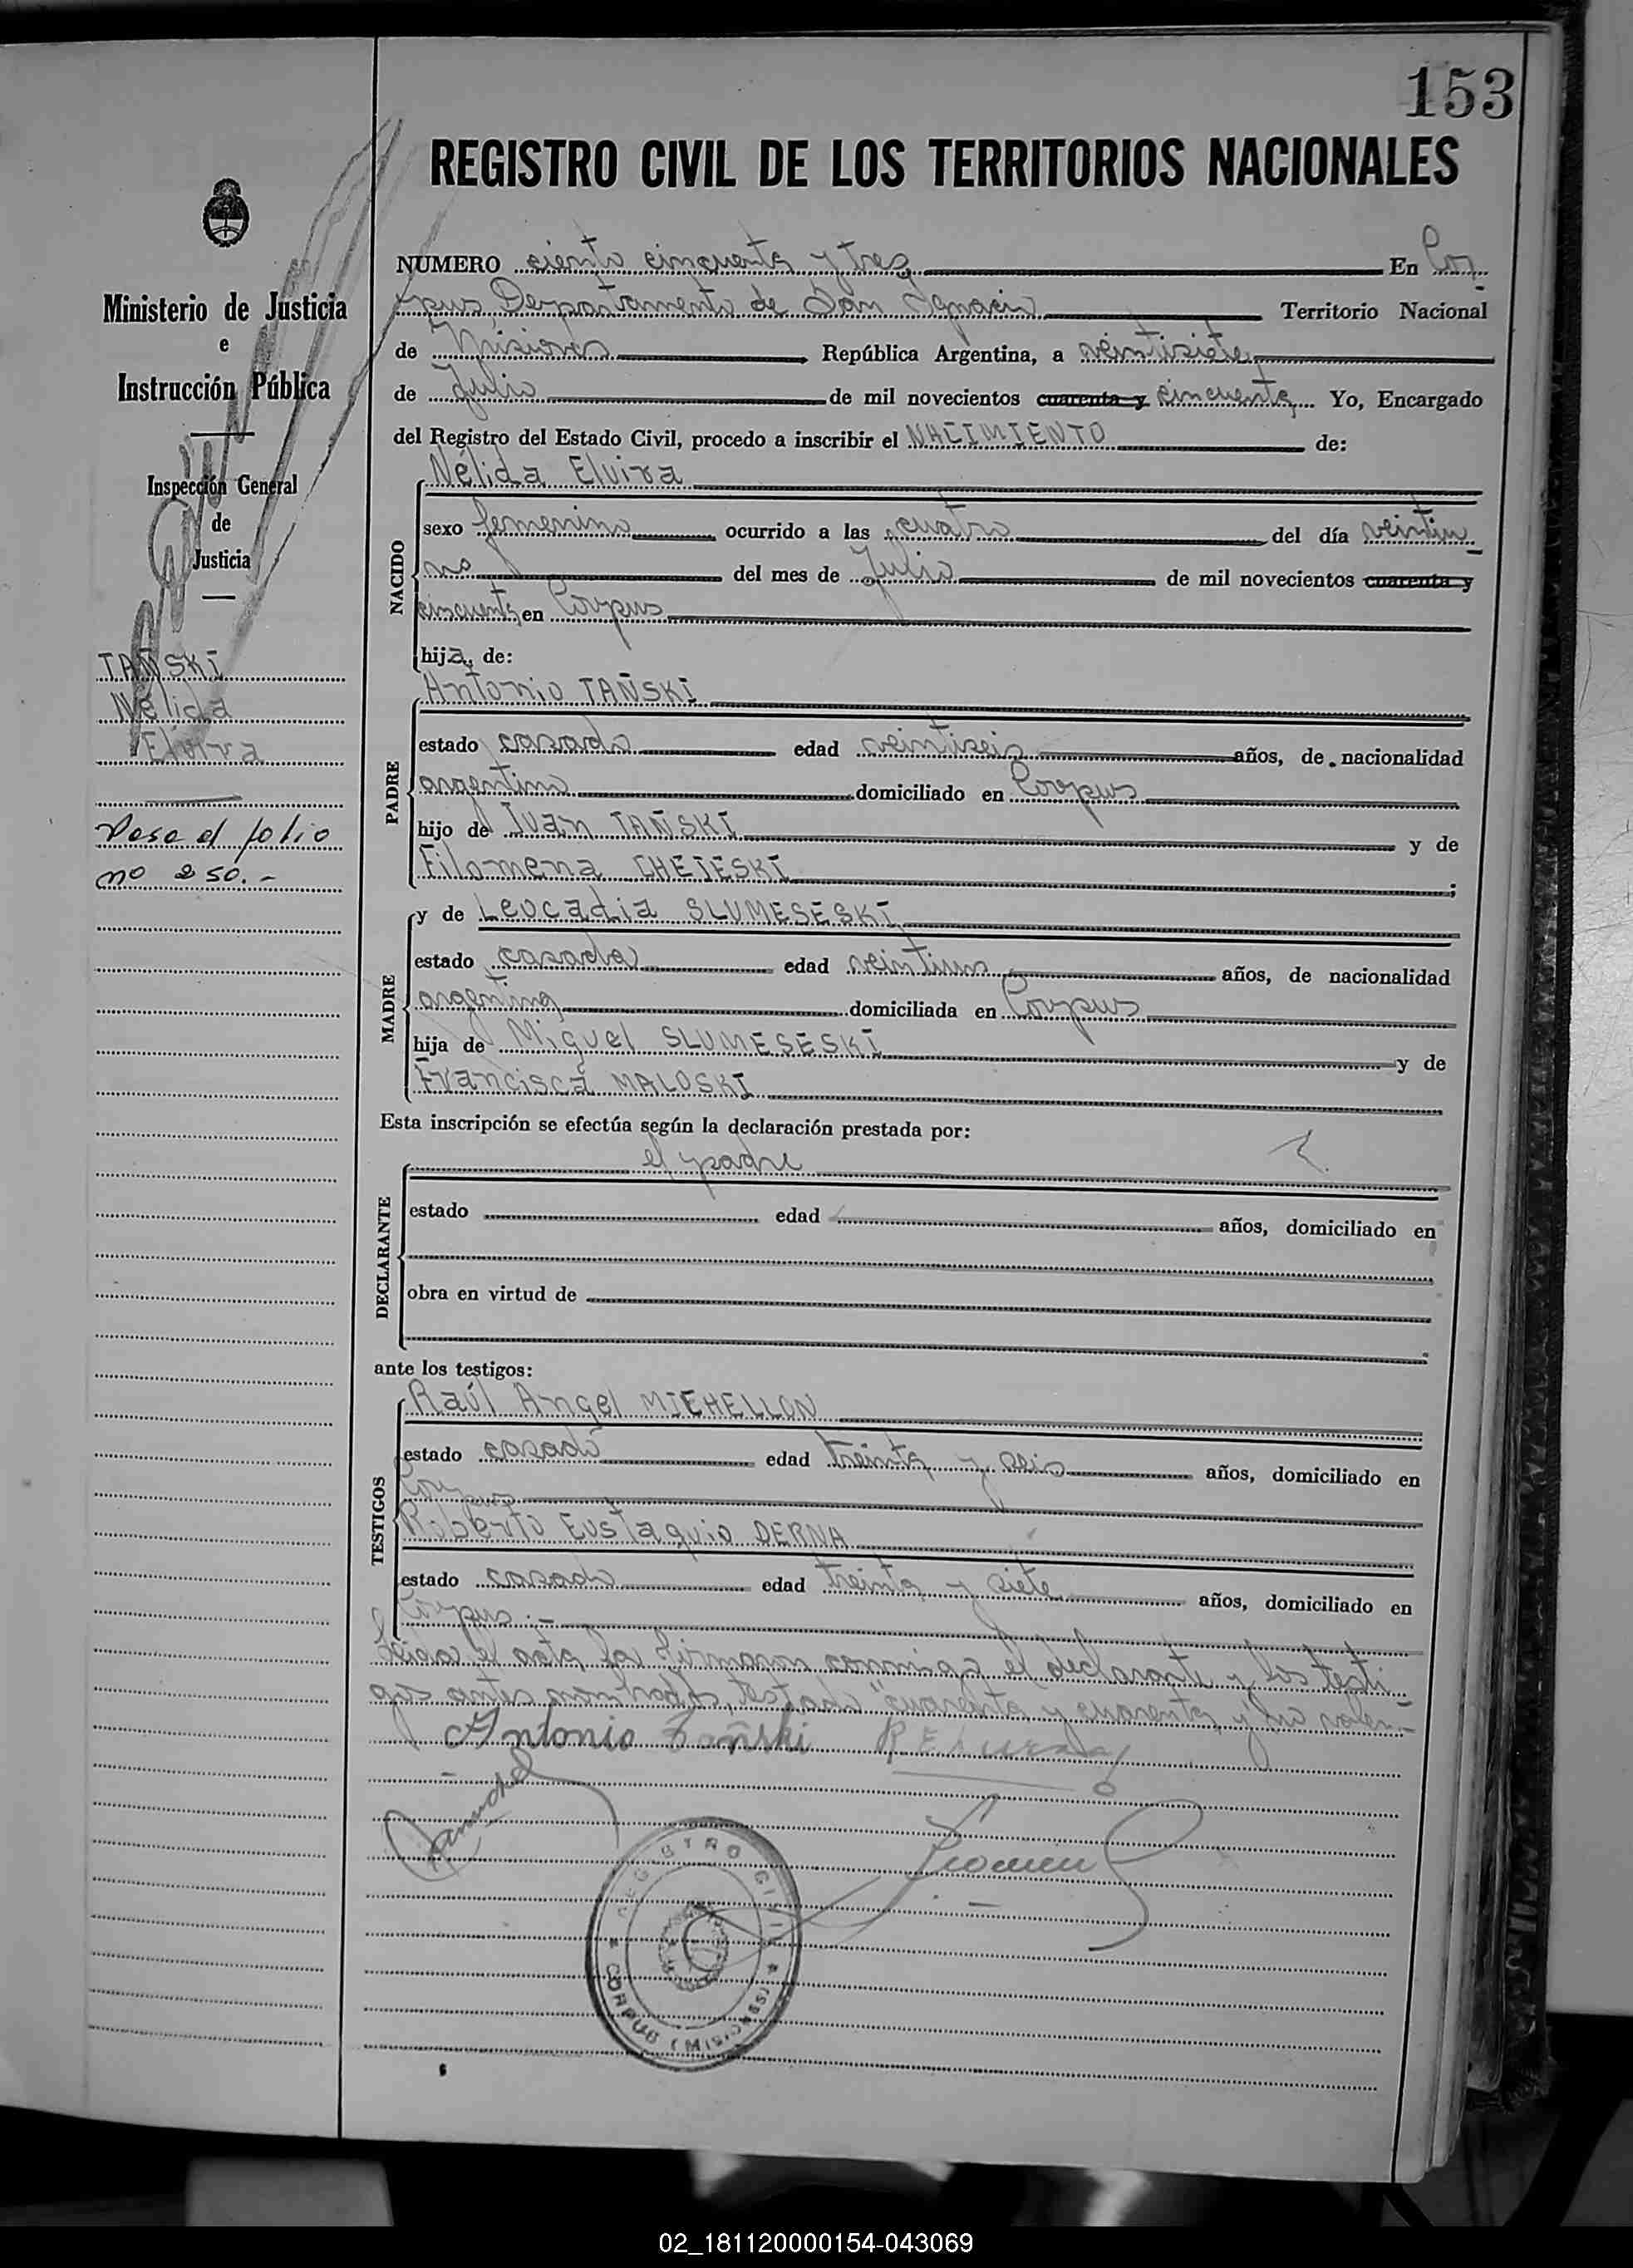 153
REGISTRO CIVIL DE LOS TERRITORIOS NACIONALES
Ministerio de Justicia
e
Instrucción Pública
Inspección General
de
Justicia
TAÑSKI
Nélida
Elvira
Pasa al folio
no 250.-
NUMERO ciento cincuenta y tres En Cor
pus Departamento de San Ignacio Territorio Nacional
de Misiones República Argentina, a veintisiete
de Julio de mil novecientos cuarenta y cincuenta Yo, Encargado
del Registro del Estado Civil, procedo a inscribir el NACIMIENTO de:
NACIDO
Nélida Elvira
sexo femenino ocurrido a las cuatro del día veintiu
no del mes de Julio de mil novecientos cuarenta y
cincuenta en Corpus
hija de:
PADRE
Antonio TAÑSKI
estado casado edad veintiseis años, de nacionalidad
argentino domiciliado en Corpus
hijo de Iván TAÑSKI y de
Filomena CHEJESKI;
MADRE
y de Leocadia SLUMESESKI
estado casada edad veintiuno años, de nacionalidad
argentina domiciliada en Corpus
hija de Miguel SLUMESESKI y de
Francisca MALOSKI
Esta inscripción se efectúa según la declaración prestada por:
DECLARANTE
el padre
estado edad años, domiciliado en
obra en virtud de
ante los testigos:
TESTIGOS
Raúl Angel MICHELLON
estado casado edad treinta y seis años, domiciliado en
Corpus
Roberto Eustaquio DERNA
estado casado edad treinta y siete años, domiciliado en
Corpus.-
Leida el acta la firmaron conmigo el declarante y los testi
gos antes nombrados, testado "cuarenta y cuarenta y" no valen-
Antonio Tañski
REGISTRO CIVIL
CORPUS (MISIONES)
02_181120000154-043069